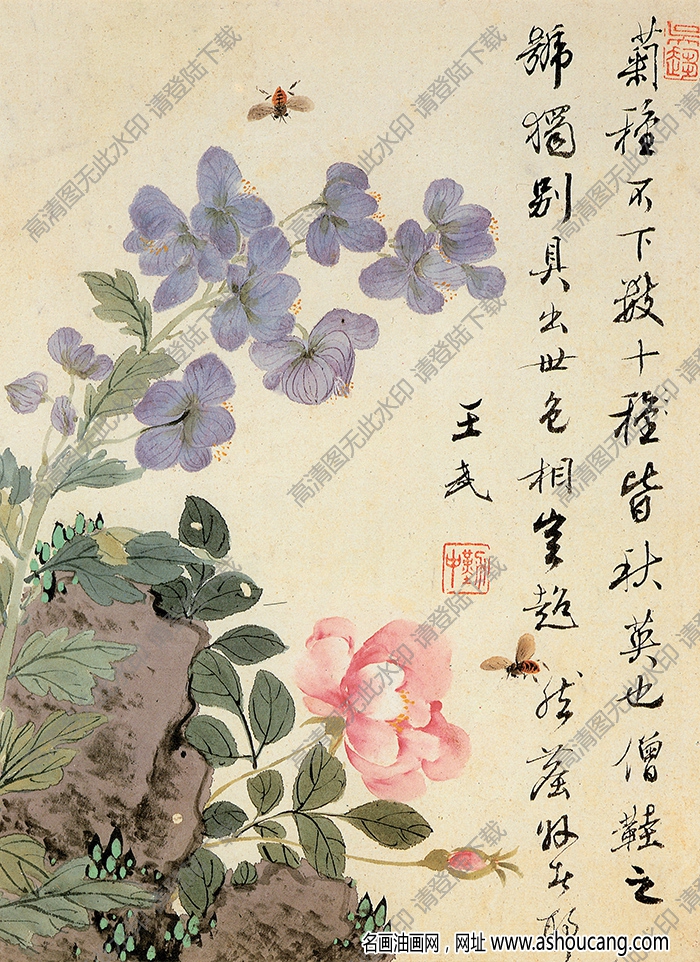 菊種不下數十種皆秋英也僧鞵之
號獨別具出世色相宜超然塵外者
王武
勤中
高清图无此水印 请登陆下载
名画油画网，网址 www.ashoucang.com